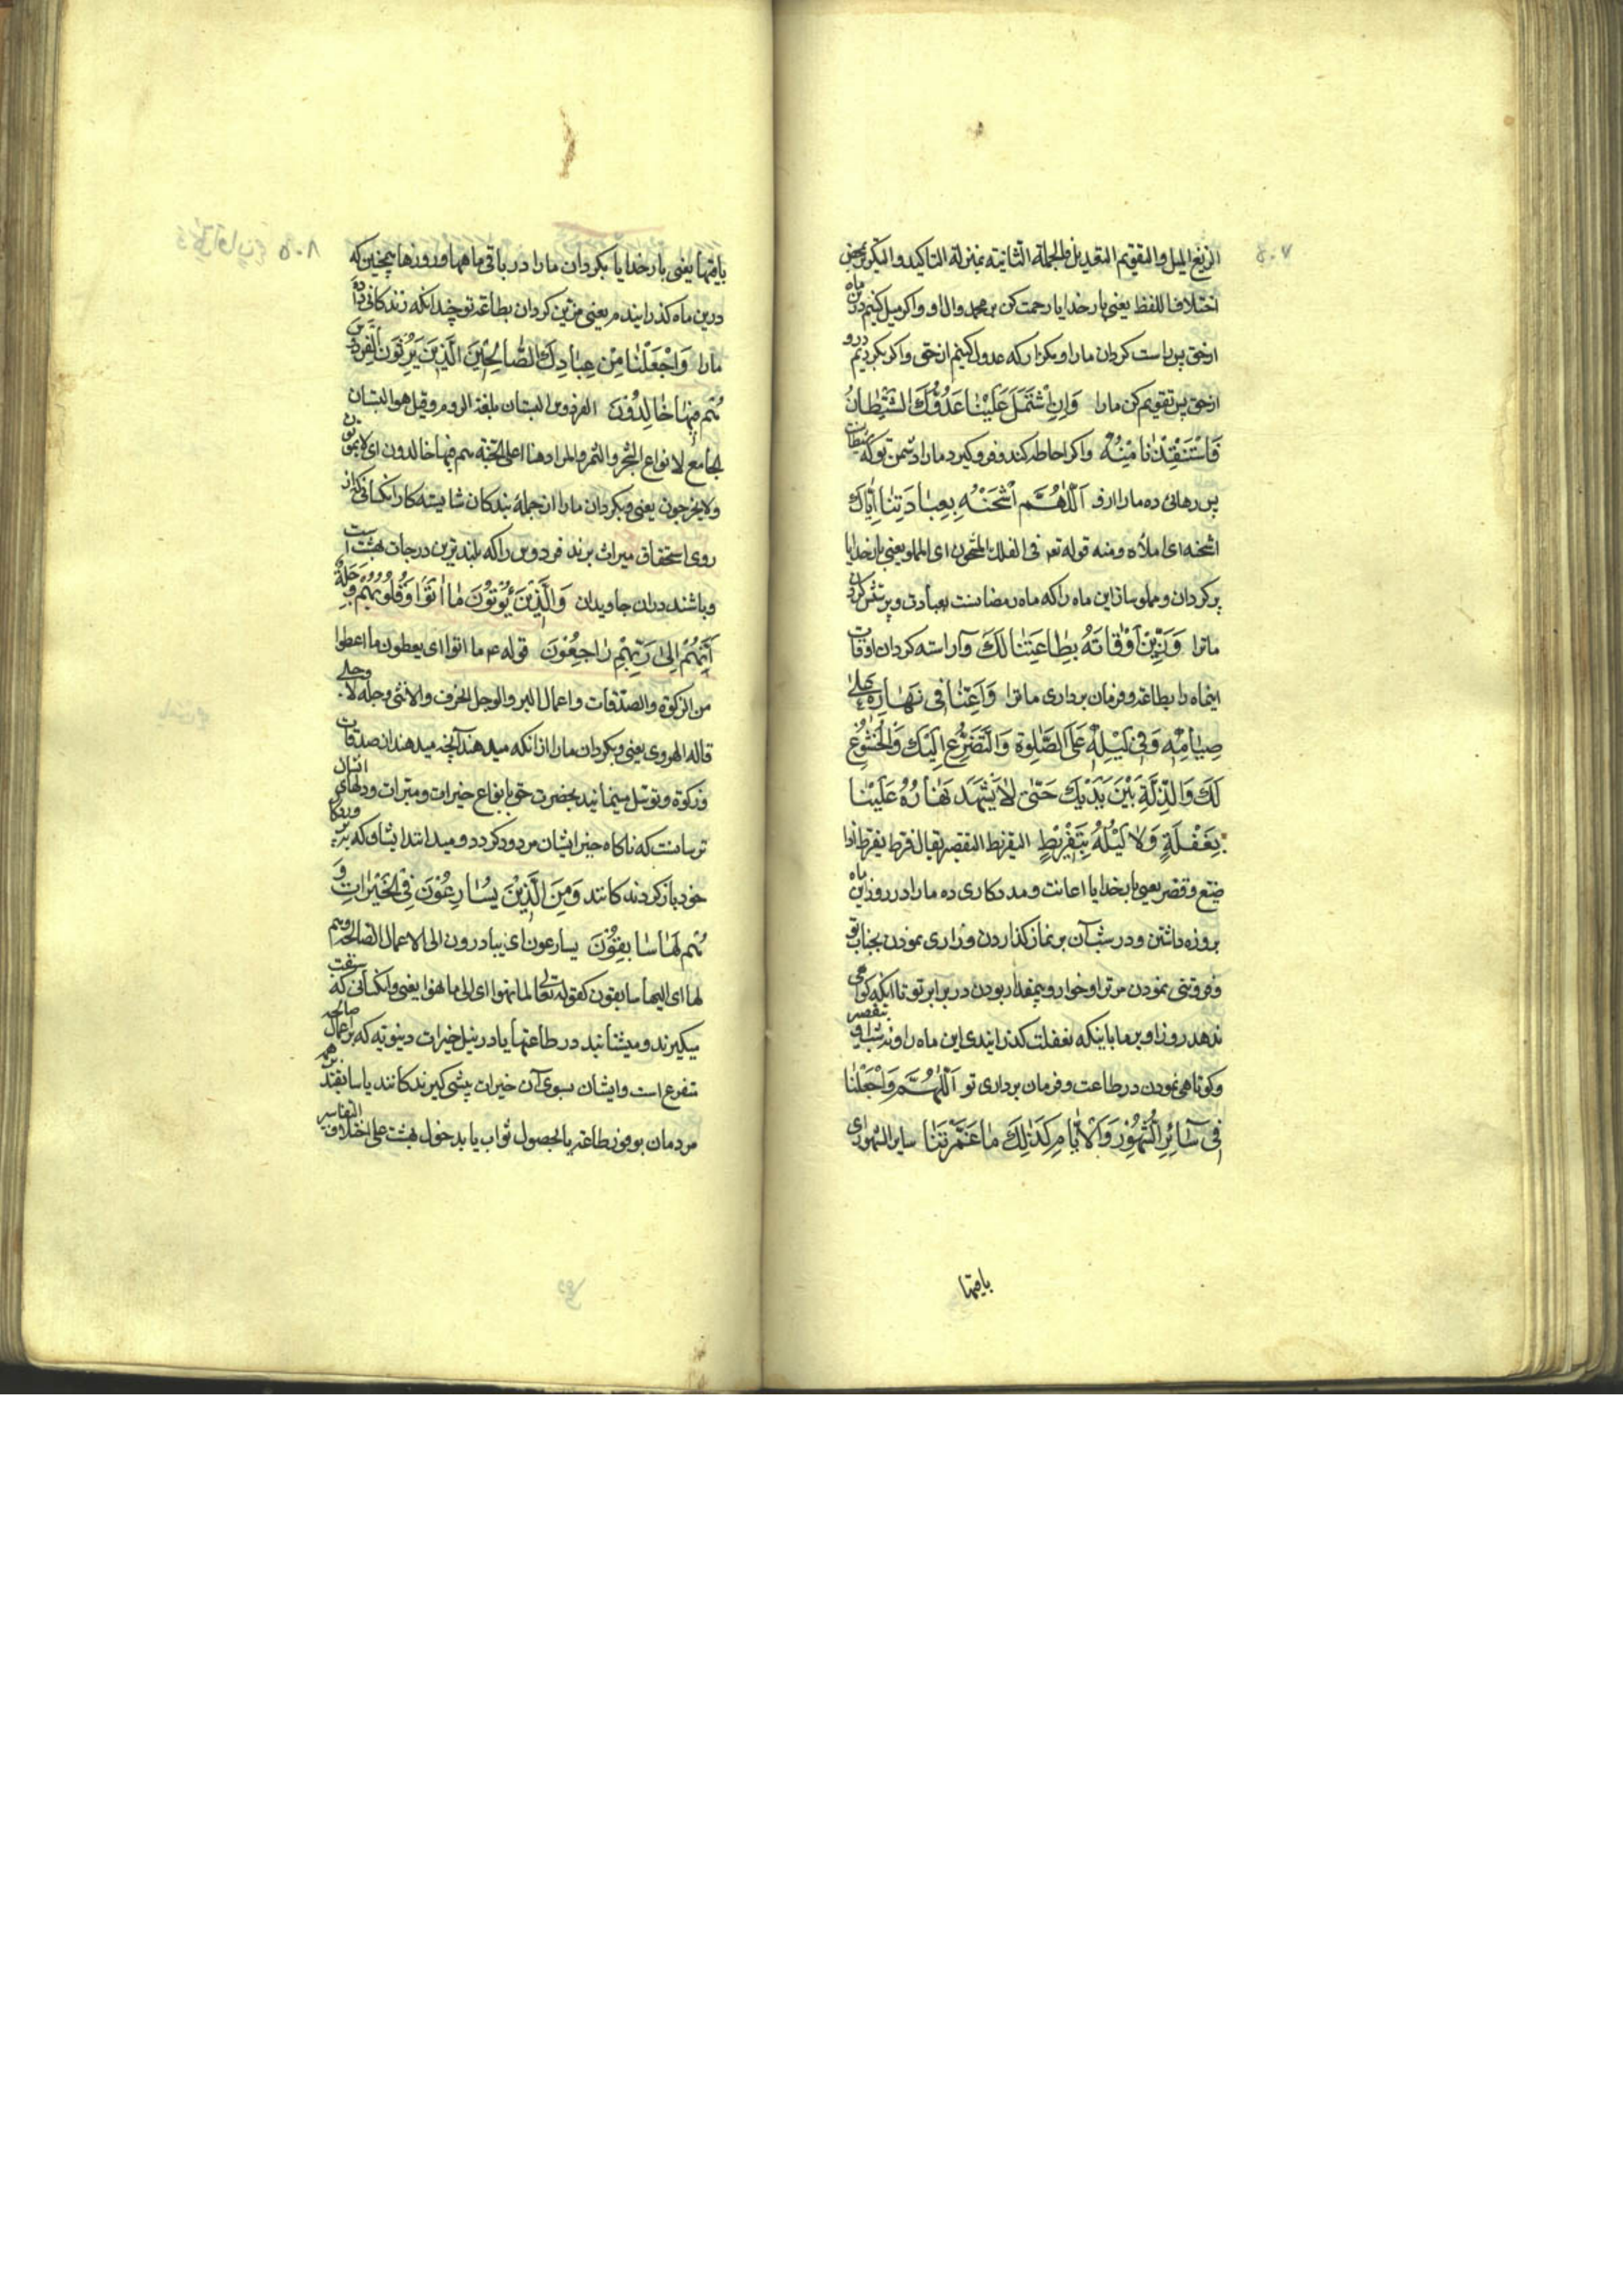 الزیغ المیل والتقویم التعدیل والجملة الثانیة بمنزلة التاکید والتکریر بمحض
اختلاف اللفظ یعنی بار خدایا رحمت کن بر محمد وال او واکر میل کنیم درین ماه
ازحق پس راست کردان مارا ومکذار که عدول کنیم ازحق واکر بکردیم درو
ازحق پس تقویم کن مارا وَاِنِ اشْتَمَلَ عَلَیْنَا عَدُوُّكَ الشَّیْطَانُ
فَاسْتَنْقِذْنَا مِنْهُ واکر احاطه کند وفرو کیرد مارا دشمن تو که شیطان است
پس رهائی ده مارا ازو اَللّٰهُمَّ اشْحَنْهُ بِعِبَادَتِنَا اِیَّاكَ
اشحنه ای املأه ومنه قوله تعر فی الفلك المشحون ای المملو یعنی بار خدایا
پر کردان ومملو ساز این ماه را که ماه رمضانست بعبادت وپرستش کردن
ماترا وَزَیِّنْ اَوْقَاتَهُ بِطَاعَتِنَا لَكَ وآراسته کردان اوقات
اینماه را بطاعت وفرمان برداری ماترا وَاَعِنَّا فِی نَهَارِهِ عَلیٰ
صِیَامِهِ وَفِی لَیْلِهِ عَلَی الصَّلٰوةِ وَالتَّضَرُّعِ اِلَیْكَ وَالْخُشُوعِ
لَكَ وَالذِّلَّةِ بَیْنَ یَدَیْكَ حَتّٰی لاٰ یَشْهَدَ نَهَارُهُ عَلَیْنَا
بِغَفْلَةٍ وَلاٰ لَیْلُهُ بِتَفْرِیطٍ التفریط التقصیر یقال فرط یفرط اذا
ضیّع وقصّر یعنی بار خدایا اعانت ومددکاری ده مارا در روز این ماه
بروزه داشتن ودر شب آن بر نماز کذاردن وزاری نمودن بجناب تو
وفروتنی نمودن مرترا وخوار وبیمقدار بودن در برابر تو تا اینکه کواهی
ندهد روز او بر ما باینکه بغفلت کذرانیدی این ماه را ونه شب او بتقصیر
وکوتاهی نمودن در طاعت وفرمان برداری تو اَللّٰهُمَّ وَاجْعَلْنَا
فِی سَائِرِ الشُّهُورِ وَالْاَیَّامِ کَذٰلِكَ مَا عَمَّرْتَنَا سایر الشهور ای
باقیها
باقیها یعنی بار خدایا بکردان مارا در باقی ماهها وروزها همچنین که
درین ماه کذرانیدم یعنی مزین کردان بطاعت تو چندانکه زندکانی داده
مارا وَاجْعَلْنَا مِنْ عِبَادِكَ الصَّالِحِینَ الَّذِینَ یَرِثُونَ الْفِرْدَوْسَ
هُمْ فِیهَا خَالِدُونَ الفردوس البستان بلغة الروم وقیل هو البستان
الجامع لانواع الشجر والثمر والمراد هنا اعلی الجنة هم فیها خالدون ای لایموتون
ولایخرجون یعنی وبکردان مارا از جملهٔ بندکان شایسته کار انکسانی که از
روی استحقاق میراث برند فردوس را که بلندترین درجات بهشت است
وباشند دران جاویدان وَالَّذِینَ یُؤْتُونَ مَا اٰتَوْا وَقُلُوبُهُمْ وَجِلَةٌ
اَنَّهُمْ اِلیٰ رَبِّهِمْ رَاجِعُونَ قوله ع ما اتوا ای یعطون ما اعطوا
من الزکوة والصدقات واعمال البر والوجل الخوف والانثی وجلة لا وجلی
قاله الهروی یعنی وبکردان مارا از انکه میدهند آنچه میدهند از صدقات
وزکوة وتوسل مینمایند بحضرت حق بانواع خیرات ومبرات ودلهای ایشان
ترسانست که ناکاه خیر ایشان مردود کردد ومیدانند ایشان که بپروردکار
خود باز کردندکانند وَمِنَ الَّذِینَ یُسَارِعُونَ فِی الْخَیْرَاتِ وَ
هُمْ لَهَا سَابِقُونَ یسارعون ای یبادرون الی الاعمال الصالحة وهم
لها ای الیها سابقون کقوله تعالی لما نهوا ای الی ما نهوا یعنی وانکسانی که سبقت
میکیرند ومیشتابند در طاعتها یا در نیل خیرات دینویّه که بر اعمال صالحه
متفرع است وایشان بسوی آن خیرات پیشی کیرندکانند یا سابقند بر همه
مردمان بوفور طاعة یا بحصول ثواب یا بدخول بهشت علی اختلاف التفاسیر